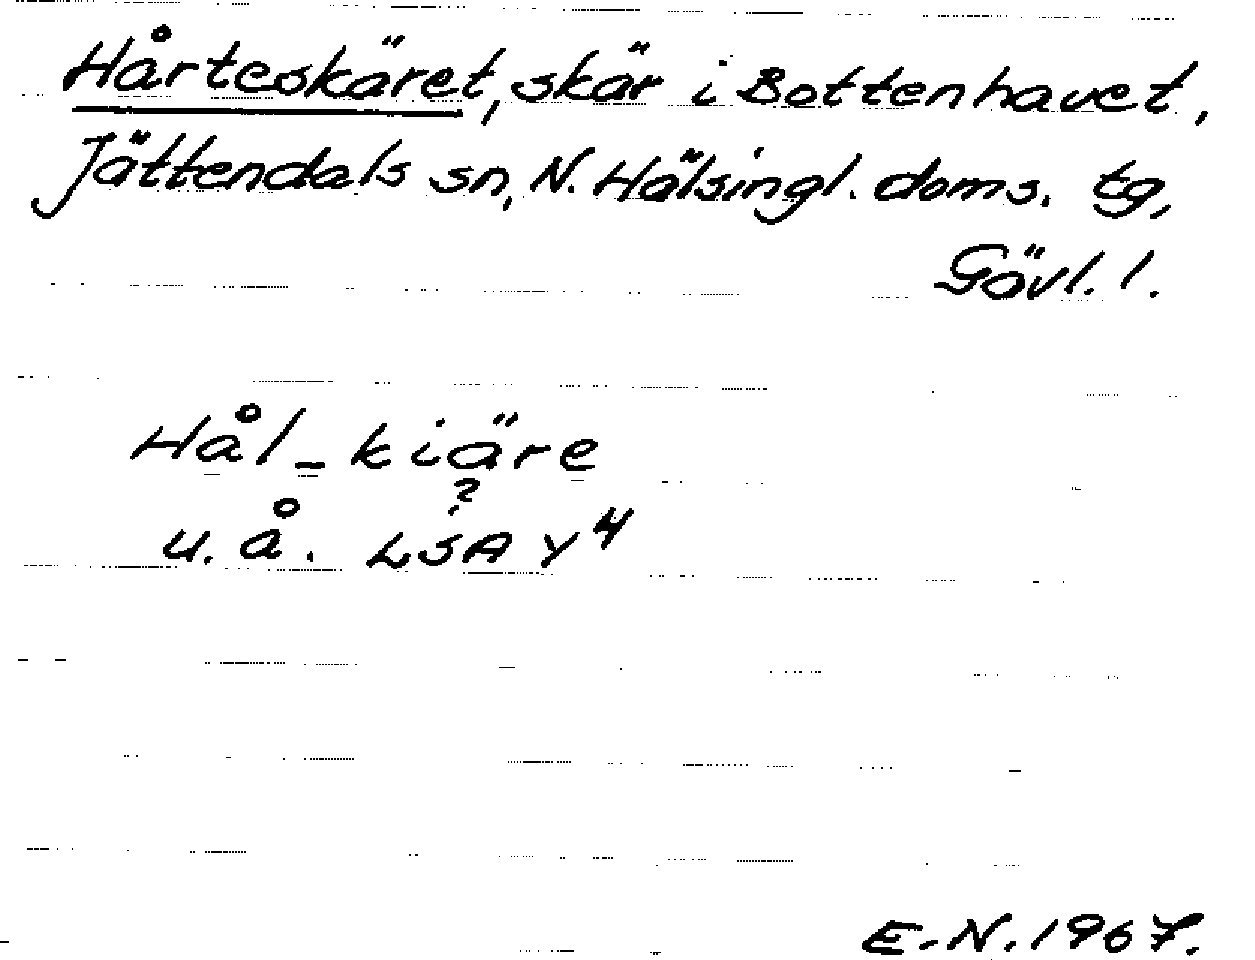 Hårteskäret, skär i Bottenhavet,
Jättendals sn, N. Hälsingl. doms. tg,
Gävl. l.
Hål-kiäre
?
u. å. LSA Y4
E-N. 1967.